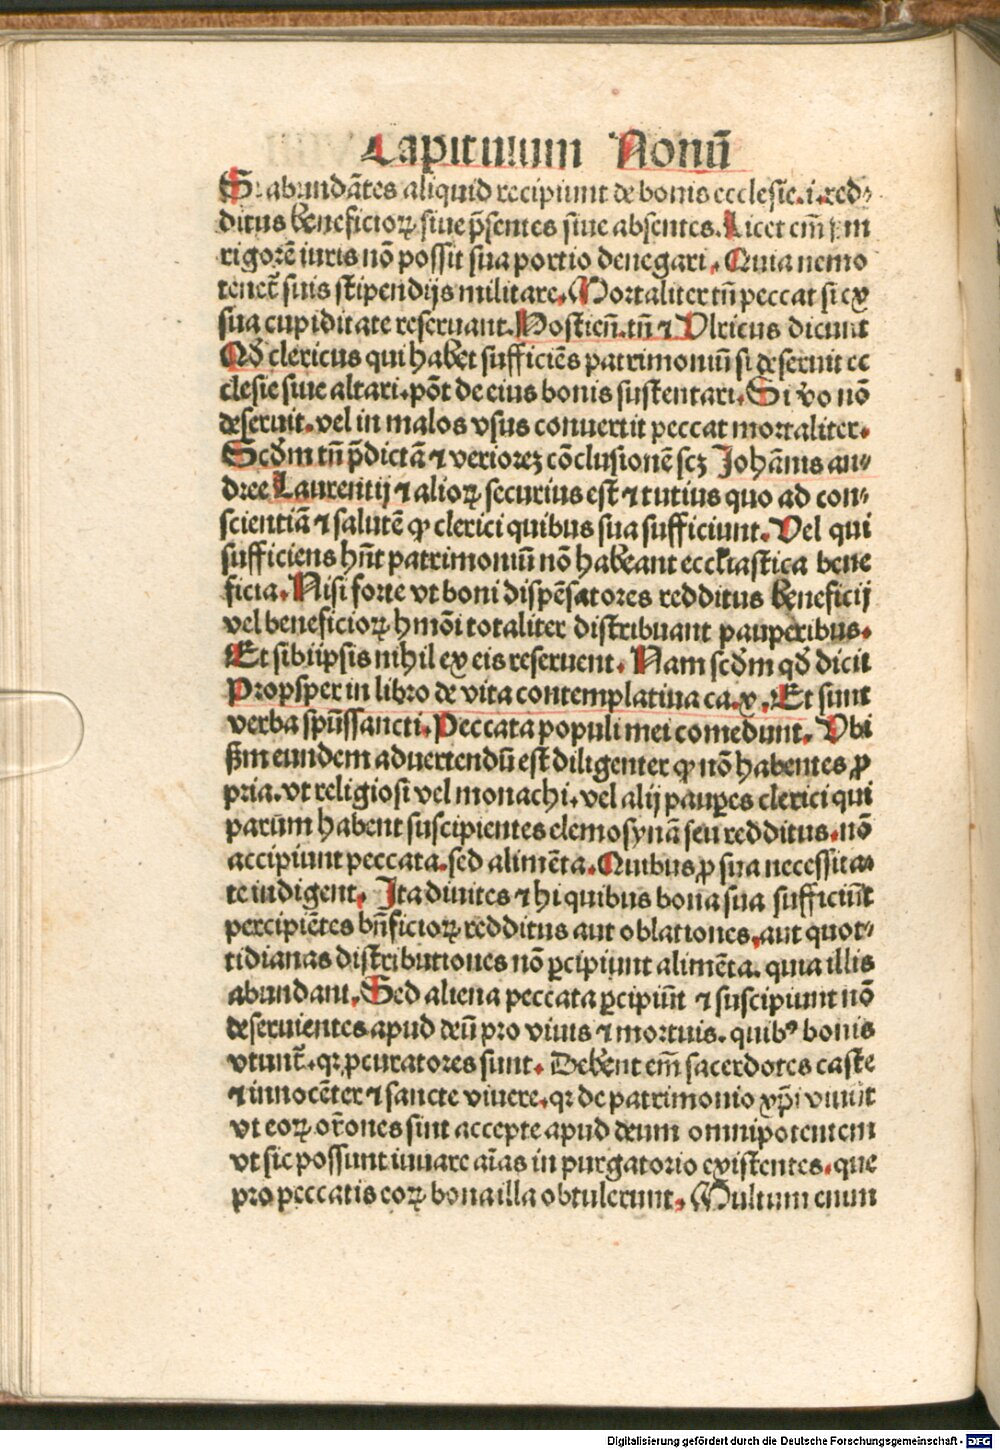 Capitulum Nonū
Si abundātes aliquid recipiunt de bonis ecclesie.i.red⸗
ditus beneficioꝝ siue p̄sentes siue absentes. Licet em̄ ẜm
rigorē iuris nō possit sua portio denegari. Quia nemo
tenet᷑ suis stipendijs militare. Mortaliter tn̄ peccat si ex
sua cupiditate reseruant. Hostien̄. tn̄ ⁊ Ulricus dicunt
Qđ clericus qui habet sufficiēs patrimoniū si deseruit ec
clesie siue altari. pōt de eius bonis sustentari. Si v̄o nō
deseruit. vel in malos vsus conuertit peccat mortaliter.
Scd̄m tn̄ p̄dictā ⁊ veriorez cōclusionē scꝫ Johānis an⸗
dree Laurentij ⁊ alioꝝ securius est ⁊ tutius quo ad con⸗
scientiā ⁊ salutē ꝙ clerici quibus sua sufficiunt. Vel qui
sufficiens hn̄t patrimoniū nō habeant eccl̄iastica bene
ficia. Nisi forte vt boni dispēsatores redditus beneficij
vel beneficioꝝ hmōi totaliter distribuant pauperibus.
Et sibiipsis nihil ex eis reseruent. Nam scd̄m qđ dicit
Propsper in libro de vita contemplatiua ca.x. Et sunt
verba spūssancti. Peccata populi mei comedunt. Vbi
ẜm eundem aduertendū est diligenter ꝙ nō habentes ꝓ
pria. vt religiosi vel monachi. vel alij pauꝑes clerici qui
parūm habent suscipientes elemosynā seu redditus. nō
accipiunt peccata. sed alimēta. Quibus ꝓ sua necessita⸗
te indigent. Ita diuites ⁊ hi quibus bona sua sufficiūt
percipiētes bn̄ficioꝝ redditus aut oblationes, aut quot⸗
tidianas distributiones nō ꝑcipiunt alimēta. quia illis
abundant. Sed aliena peccata ꝑcipiūt ⁊ suscipiunt nō
deseruientes apud deū pro viuis ⁊ mortuis. quibꝰ bonis
vtunt᷑. qꝛ ꝓcuratores sunt. Debent em̄ sacerdotes caste
⁊ innocēter ⁊ sancte viuere. qꝛ de patrimonio xp̄i viuūt
vt eoꝝ or̄ones sint accepte apud deum omnipotentem
vt sic possunt iuuare aīas in purgatorio existentes. que
pro peccatis eoꝝ bona illa obtulerunt. Multum enim
Digitalisierung gefördert durch die Deutsche Forschungsgemeinschaft - DFG